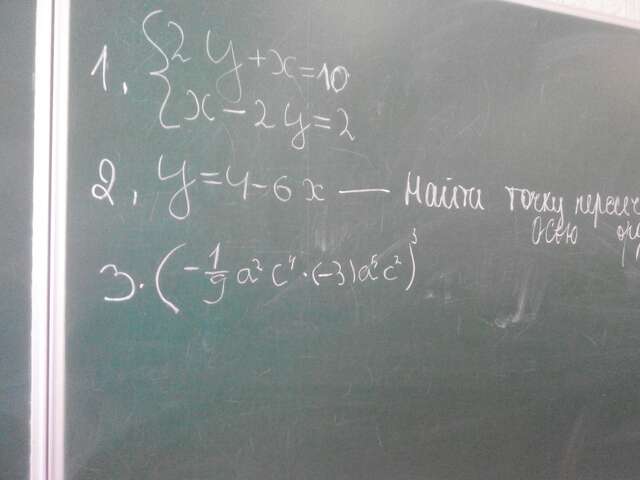 1. { 2y + x = 10
x - 2y = 2
2. y = 4 - 6x — Найти точку
осью
3. (-1/9 a² c⁴ · (-3) a⁵ c²)³